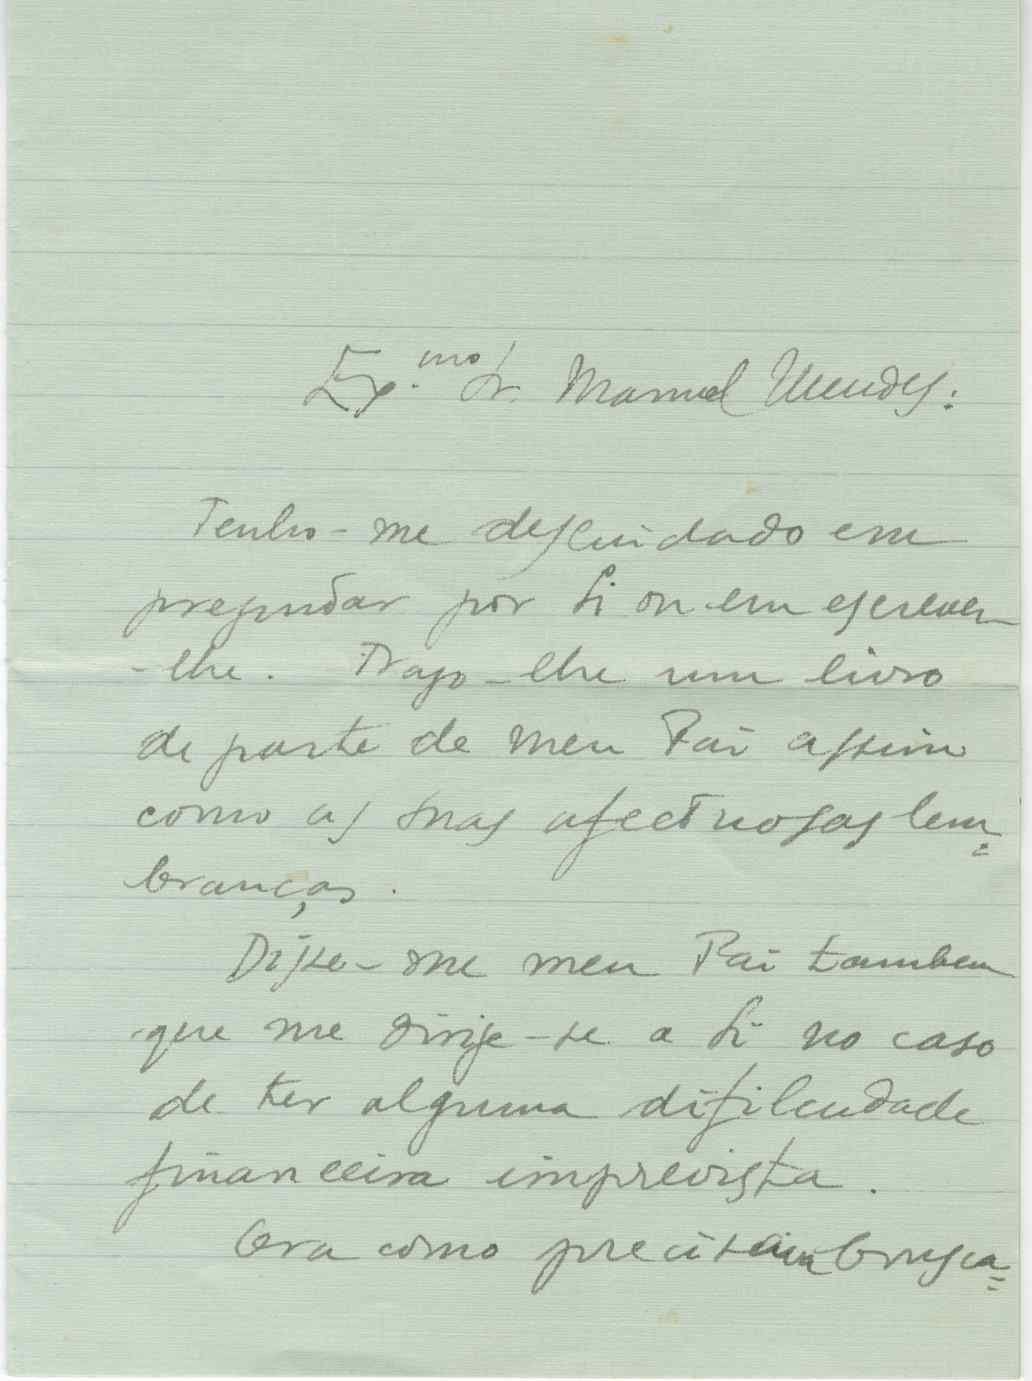 Ex.mo Sr. Manuel Mendes:
Tenho-me descuidado em
preguntar por Si ou em escrever-
-lhe. Trago-lhe um livro
de parte de meu Pai assim
como as suas afectuosas lem=
branças.
Disse-me meu Pai tambem
que me dirige-se a Si no caso
de ter alguma dificuldade
financeira imprevista.
Ora como preciso brusca=